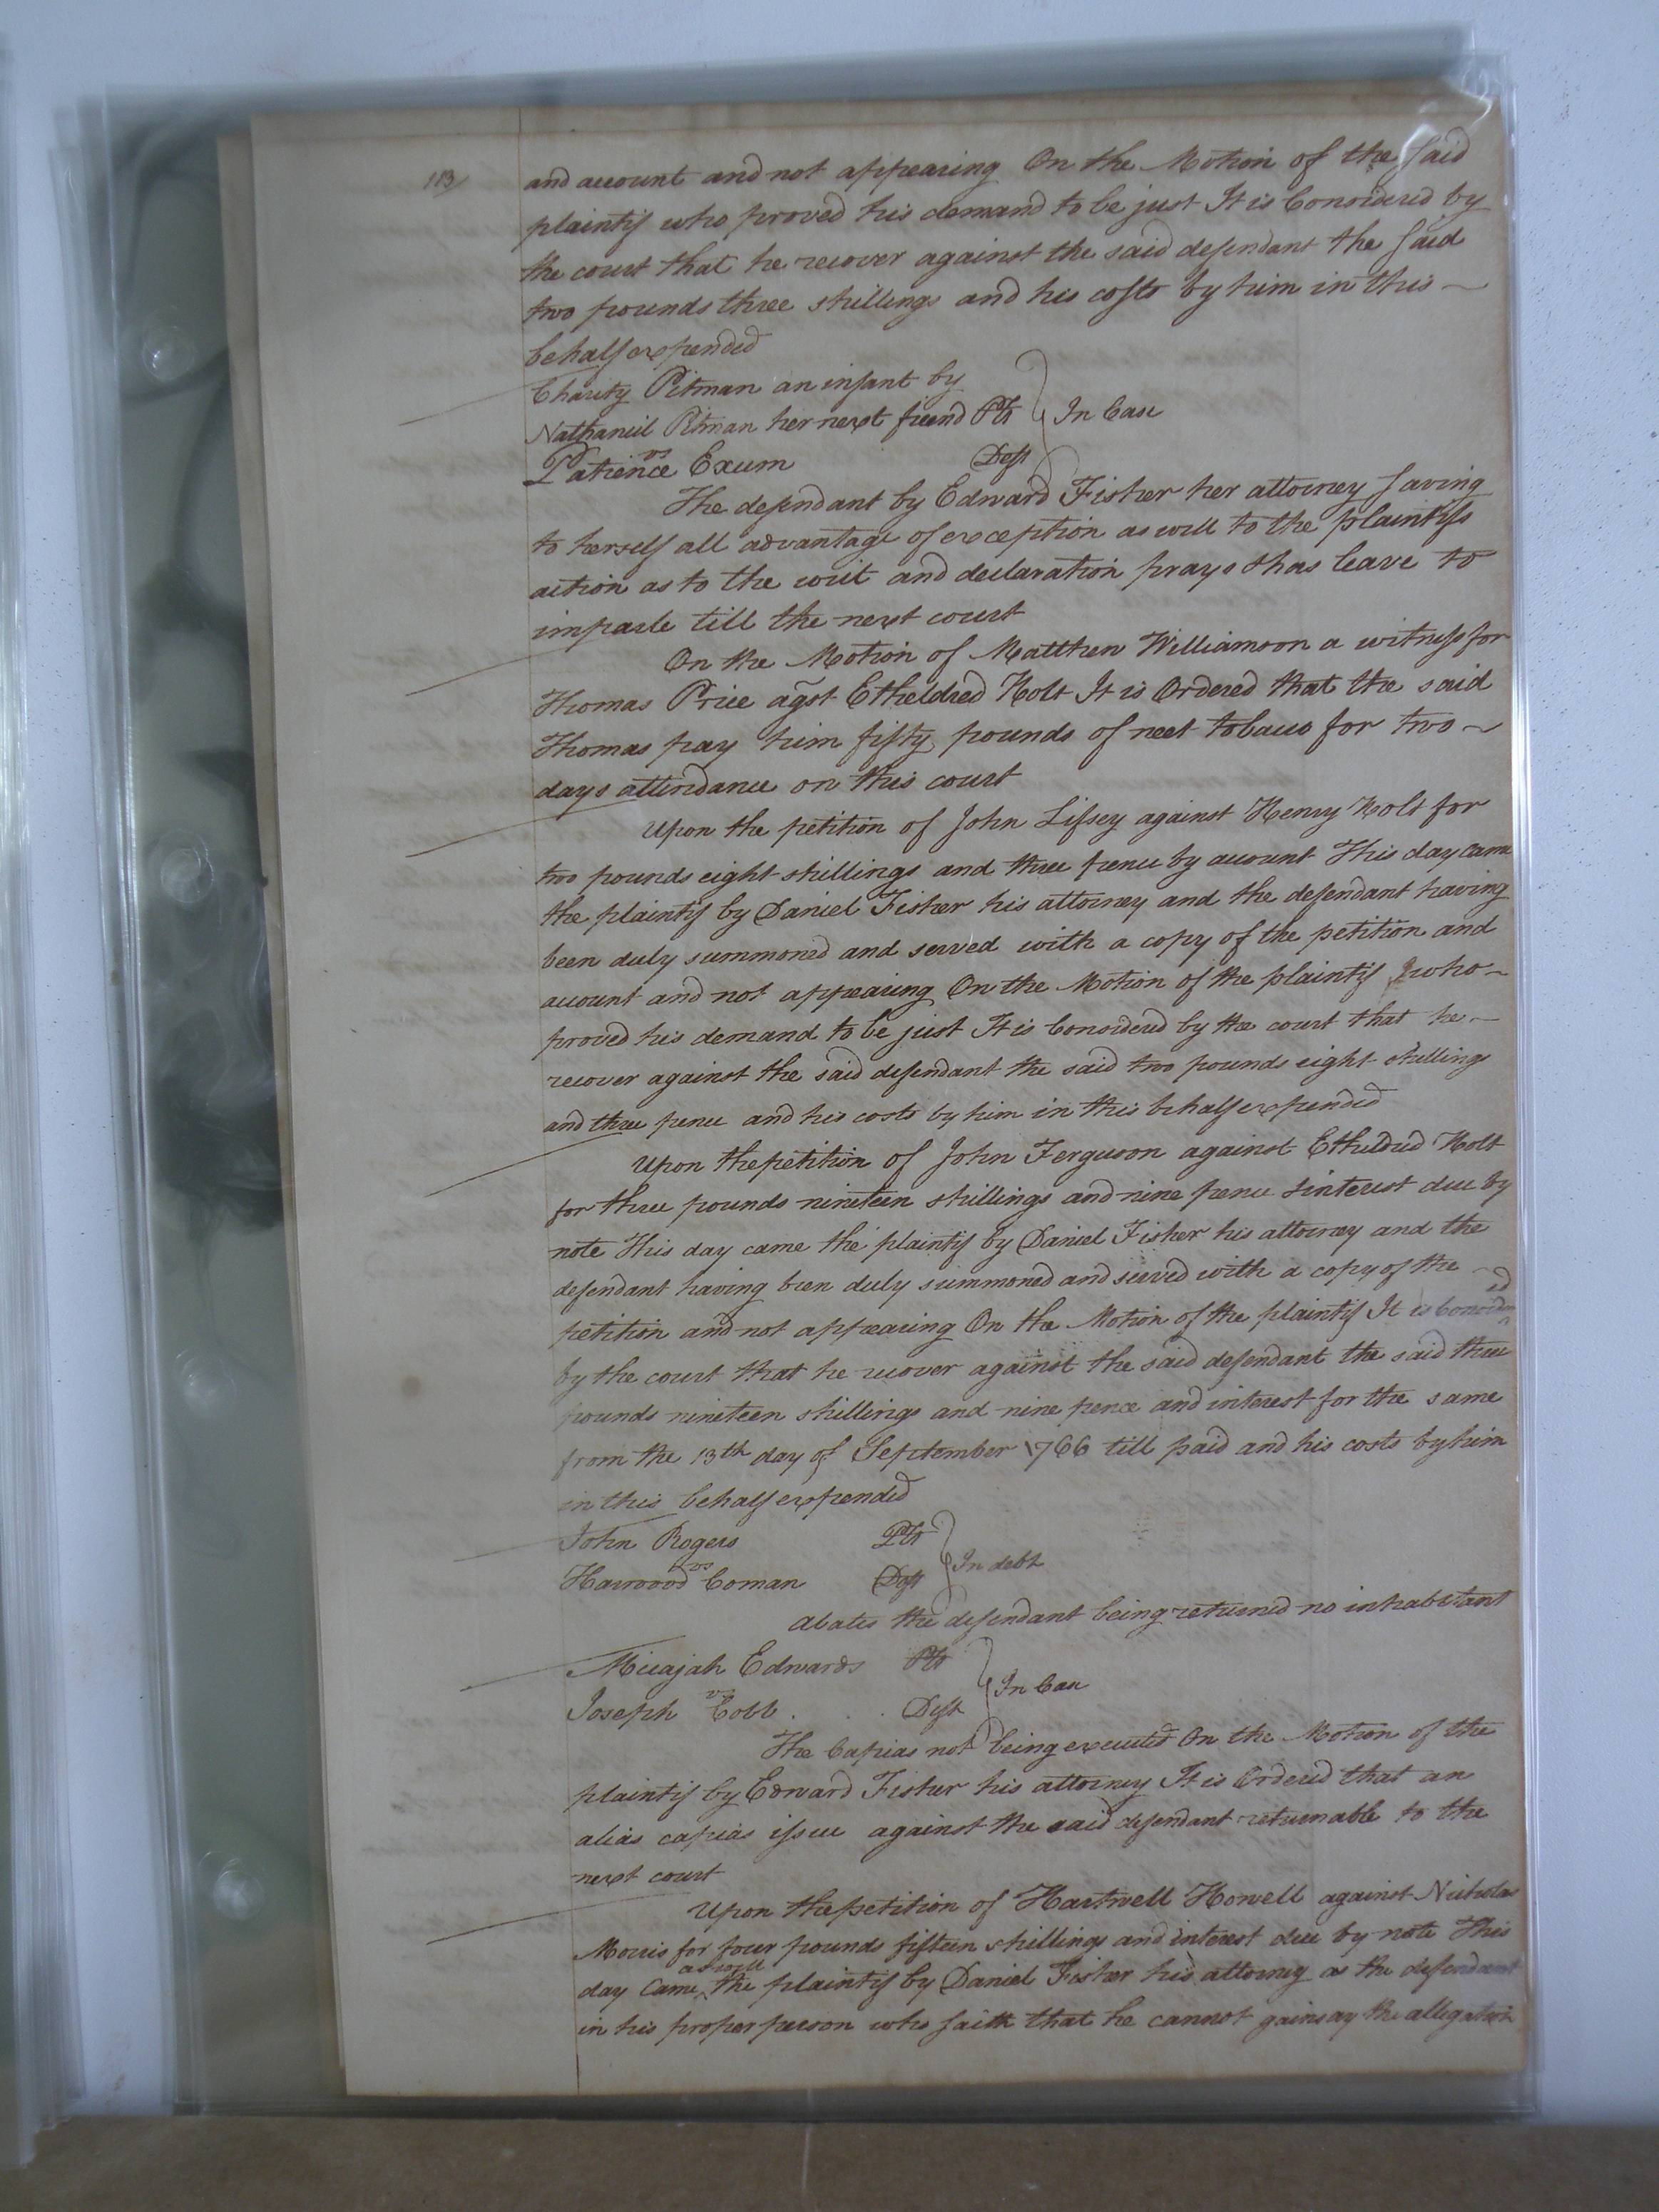 113
and account and not appearing On the Motion of the said
plaintif who proved his demand to be just It is Considered by
the court that he recover against the said defendant the said
two pounds three shillings and his costs by him in this
behalf expended
Charity Pitman an infant by
Nathaniel Pitman her next friend Plt } In Case
vs
Patience Exum Deft
The defendant by Edward Fisher her attorney saving
to herself all advantage of exception as well to the plaintifs
action as to the writ and declaration prays thas leave to
imparle till the next court
On the Motion of Matthew Williamson a witness for
Thomas Price agst Etheldred Holt It is Ordered that the said
Thomas pay him fifty pounds of neet tobacco for two
days attendance on this court
Upon the petition of John Lissey against Henry Holt for
two pounds eight shillings and three pence by account This day came
the plaintif by Daniel Fisher his attorney and the defendant having
been duly summoned and served with a copy of the petition and
account and not appearing On the Motion of the plaintif who
proved his demand to be just It is Considered by the court that he
recover against the said defendant the said two pounds eight shillings
and three pence and his costs by him in this behalf expended
Upon the petition of John Ferguson against Etheldred Holt
for three pounds nineteen shillings and nine pence & interest due by
note This day came the plaintif by Daniel Fisher his attorney and the
defendant having been duly summoned and served with a copy of the
petition and not appearing On the Motion of the plaintif It is Considered
by the court that he recover against the said defendant the said three
pounds nineteen shillings and nine pence and interest for the same
from the 13th day of September 1766 till paid and his costs by him
in this behalf expended
John Rogers Plt
vs } In debt
Harwood Coman Deft
abates the defendant being returned no inhabitant
Micajah Edwards Plt
vs } In Case
Joseph Cobb . . Deft
The Capias not being executed On the Motion of the
plaintif by Edward Fisher his attorney It is Ordered that an
alias capias issue against the said defendant returnable to the
next court
Upon the petition of Hartwell Howell against Nicholas
Morris for four pounds fifteen shillings and interest due by note This
day Came as well the plaintif by Daniel Fisher his attorney as the defendant
in his proper person who saith that he cannot gainsay the allegation